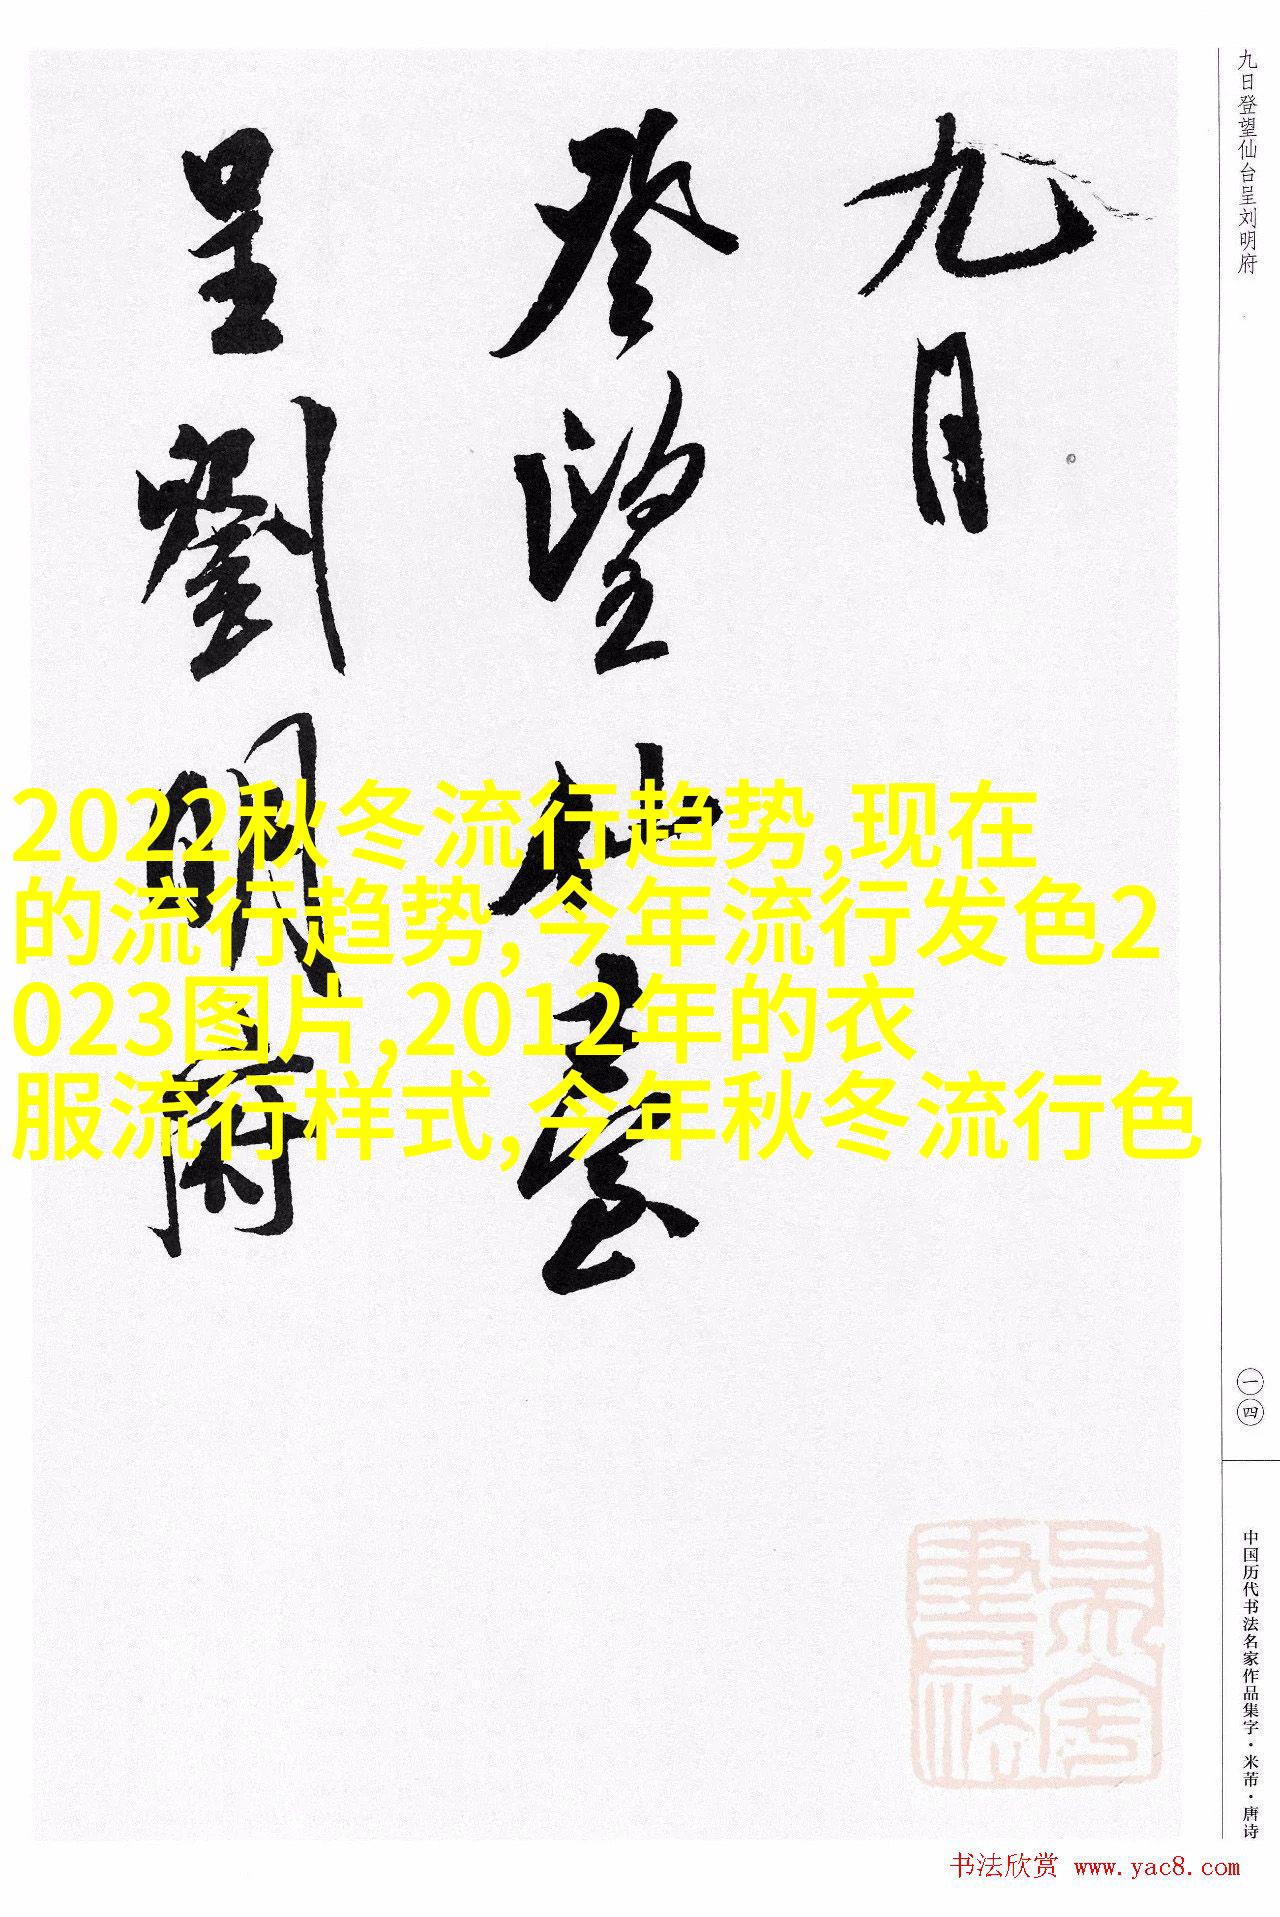 九日
登望仙臺
呈劉明府
2022秋冬流行趋势,现在
的流行趋势,今年流行发色2
023图片,2012年的衣
服流行样式,今年秋冬流行色
九日登望仙台呈刘明府
一四
中国历代书法名家作品集字·米芾·唐诗
书法欣赏 www.yac8.com